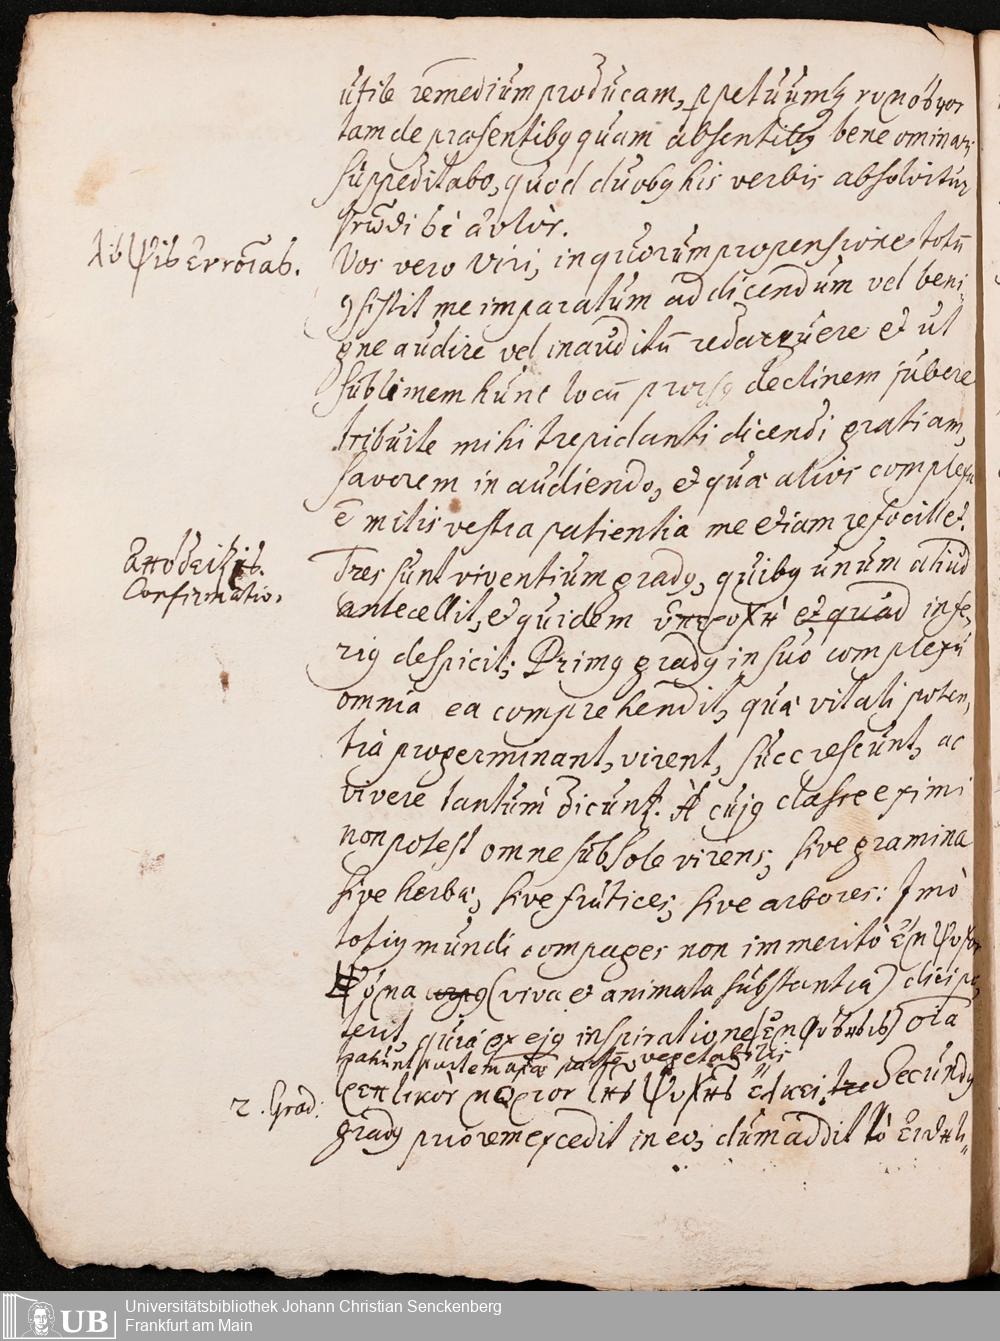 utile remedium producam, ppetuumq;
tam de præsentibq quam absentibq bene ominari
suppeditabo, quod duobq his verbis absolvitur
γνῶθι σὲ αὐτὸν.
λῆψις εὐνοίας.
Vos vero Viri, in quorum propensione totū
ɔsistit me imparatum ad dicendum vel beni-
gne audire vel inauditū redarguere et ut
sublimem hunc locū prorsq declinem jubere
tribuite mihi trepidanti dicendi gratiam,
favorem in audiendo, et quæ alios complexa
ē mitis vestra patientia me etiam refocillet.
ἀπόδειξις.
Confirmatio.
Tres sunt viventium gradq, quibq unum aliud
antecellit, et quidem ὑπεροχῇ et quad infe-
riq despicit; Primq gradq in suo complexu
omnia ea comprehendit, quæ vitali poten-
tia progerminant, virent, succrescunt, ac
vivere tantum dicunt. A cujq classe eximi
non potest omne sub sole virens, sive gramina
sive herbæ, sive frutices, sive arbores: Imò
totiq mundi compages non immeritò ἔμψυχον
(viva et animata substantia) dici po-
terit, quia ex ejq inspiratione (ἐμφύσησις)
partem vegetabilis
θρεπτικὸν μόριον τῆς ψυχῆς ἕλκει. Secundq
2. Grad:
gradq priorem excedit in eo, dum addit τὸ
Universitätsbibliothek Johann Christian Senckenberg
Frankfurt am Main
UB